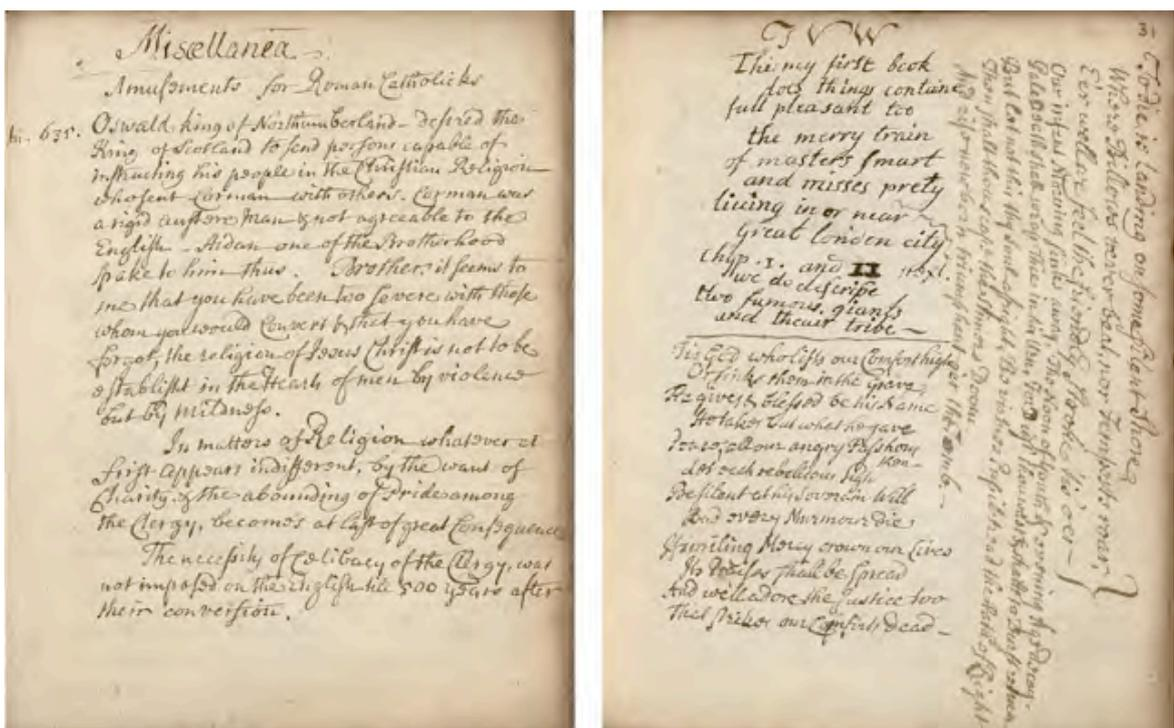 Miscellanea
Amusements for Roman Catholicks
635. Oswald king of Northumberland desired the
King of Scotland to send persons capable of
instructing his people in the Christian Religion
who sent Corman with others. Corman was
a rigid austere Man & not agreeable to the
English - Aidan one of the Brotherhood
spake to him thus. Brother, it seems to
me that you have been too severe with those
whom you would Convert & that you have
forgot, the religion of Jesus Christ is not to be
establisht in the Hearts of men by violence
but by mildness.
In matters of Religion whatever at
first appears indifferent, by the want of
Charity & the abounding of Pride among
the Clergy, becomes at last of great Consequence
The necessity of Celibacy of the Clergy, was
not imposed on the English till 500 years after
their conversion.
31
T V W
The my first book
does things containe
full pleasant too
the merry train
of masters smart
and misses prety
living in or near
great london city
chap. I. and II next.
we do descripe
two famous giants
and theier tribe
Tis God who lifts our Comforts high
Or sinks them in the Grave
He gives & blessed be his Name
He takes but what he gave
Peace, all our angry Passions
then
let each rebellious Sigh
Be silent at his Sovraign Will
And every Murmour die
If smiling Mercy crown our Lives
Its Praises shall be spread
And we'll adore the Justice too
That strikes our Comforts dead
To die is landing on some silent Shore
Where Billows never beat, nor Tempests roar
E'er we
feel the friendly stroke tis o'er